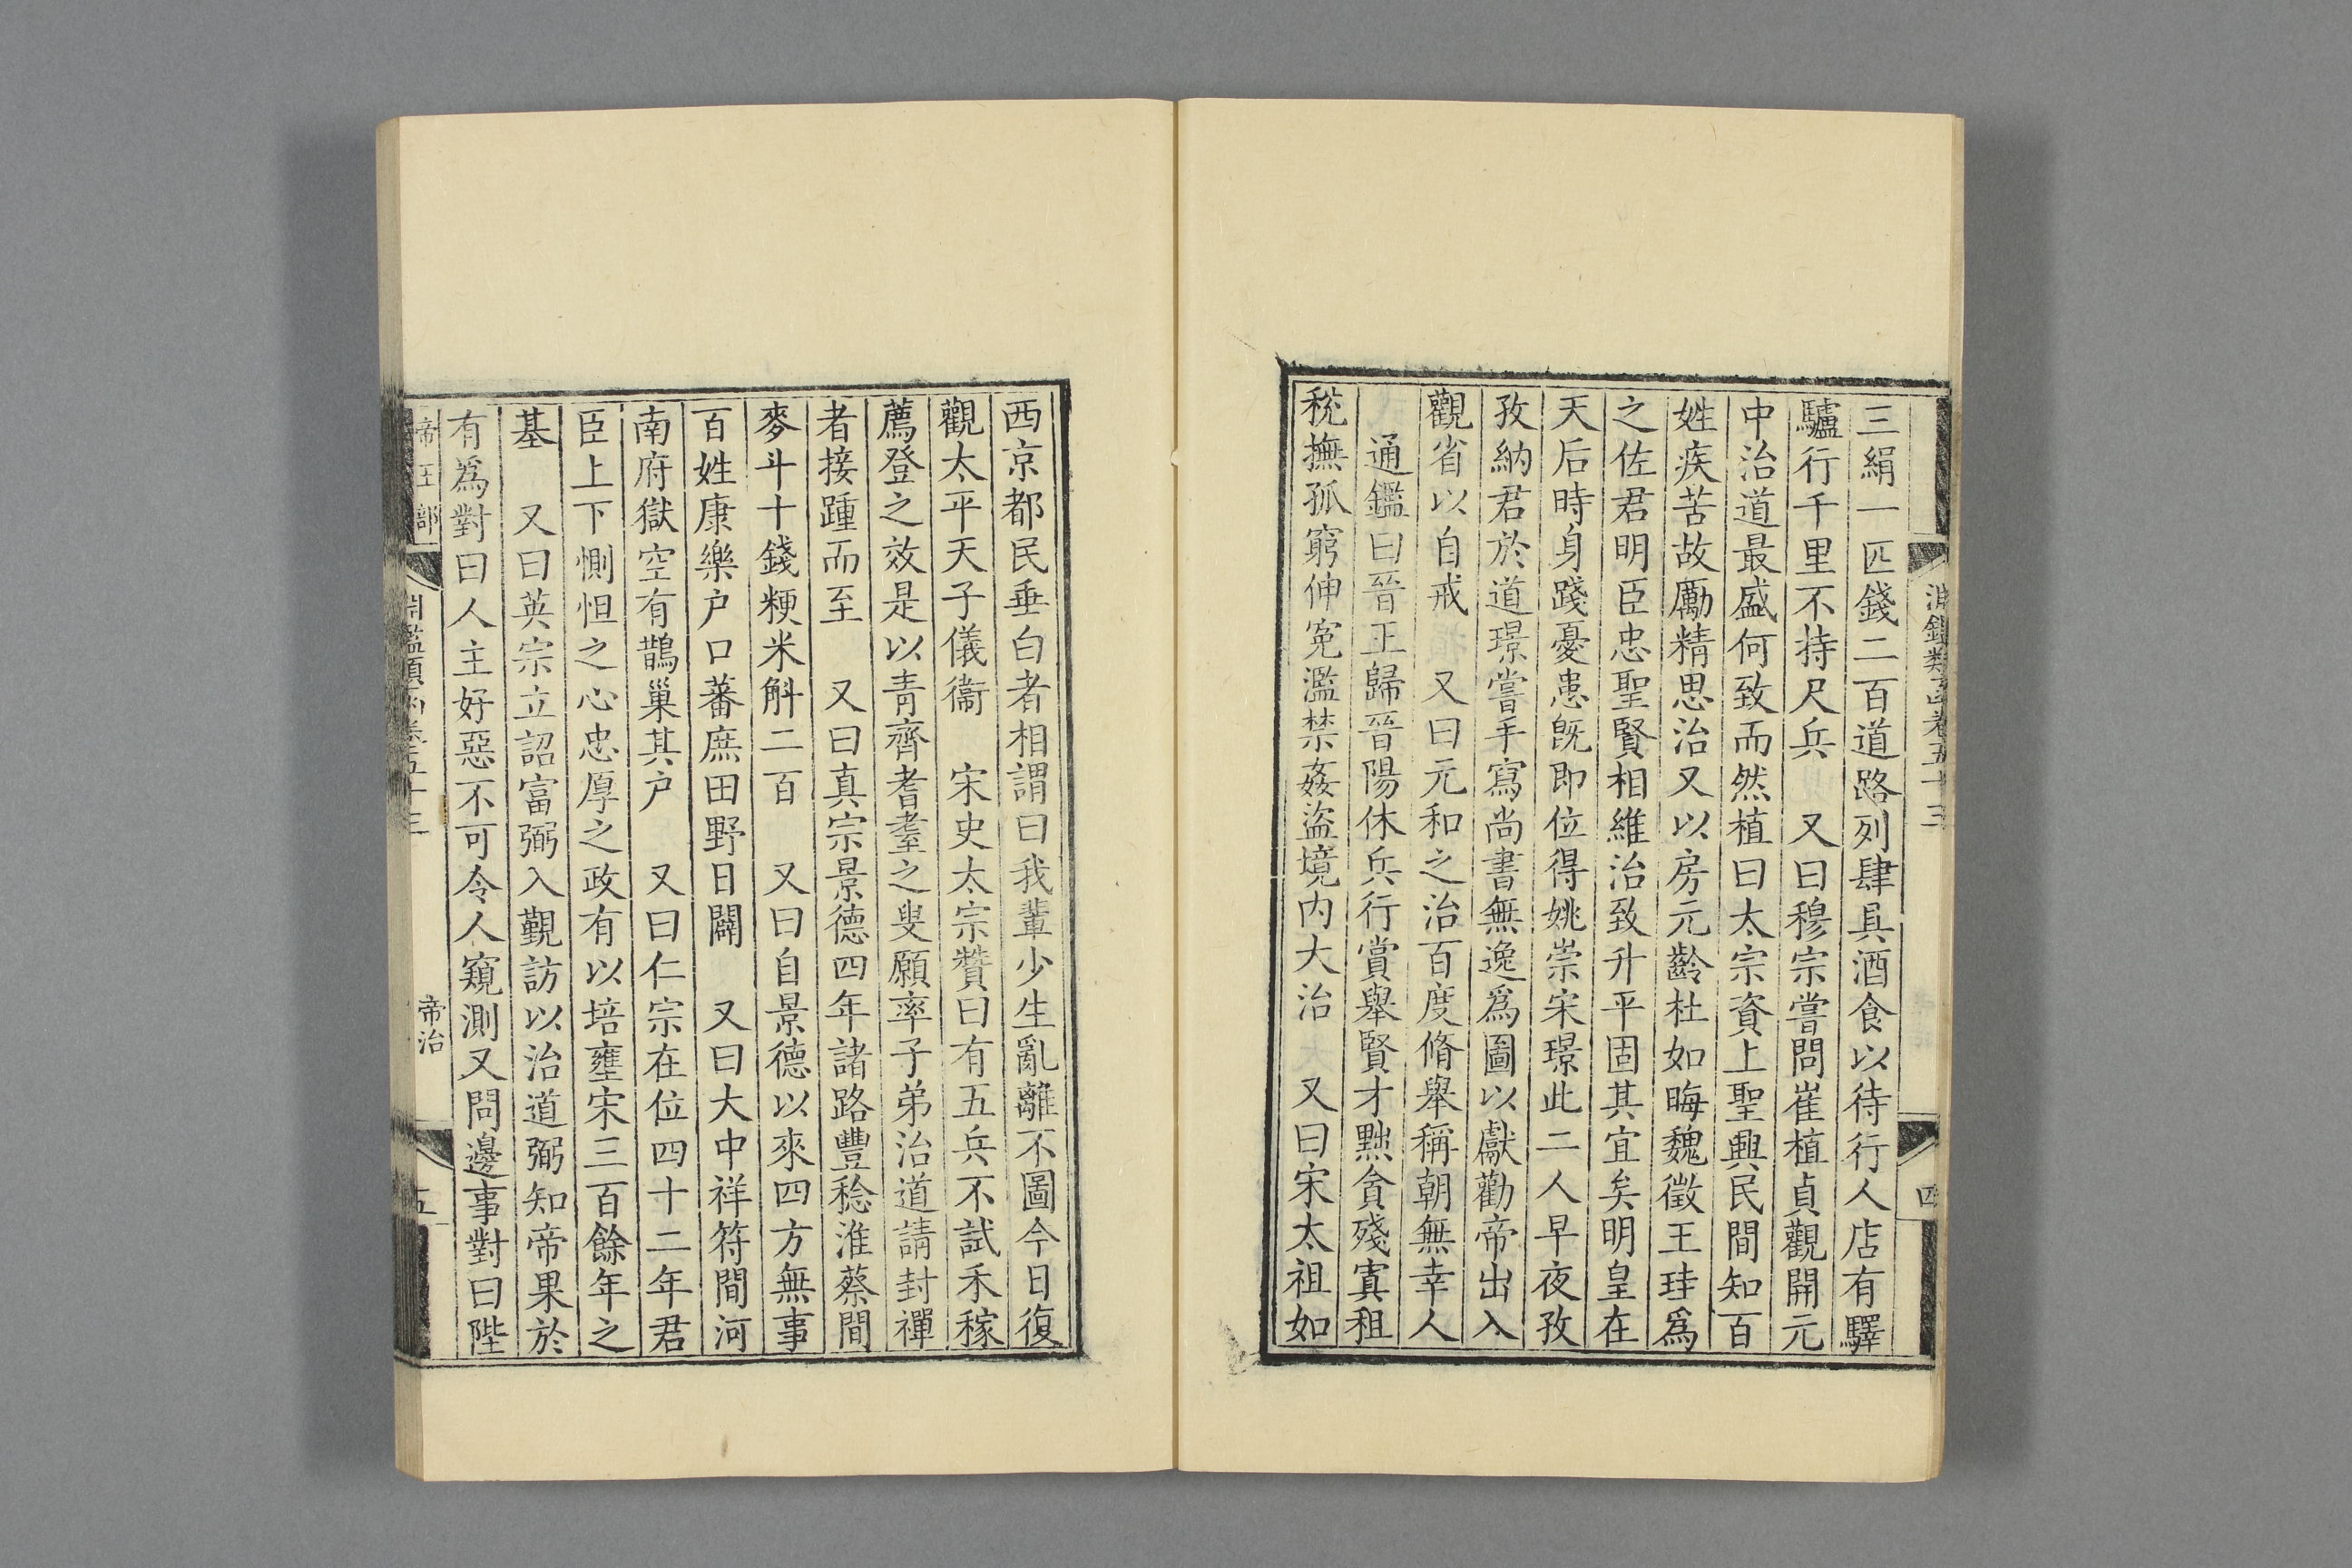 淵鑑類函卷五十三
四
三絹一匹錢二百道路列肆具酒食以待行人店有驛
驢行千里不持尺兵　又曰穆宗嘗問崔植貞觀開元
中治道最盛何致而然植曰太宗資上聖興民間知百
姓疾苦故厲精思治又以房元齡杜如晦魏徵王珪爲
之佐君明臣忠聖賢相維治致升平固其宜矣明皇在
天后時身踐憂患旣即位得姚崇宋璟此二人早夜孜
孜納君於道璟嘗手寫尚書無逸爲圖以獻勸帝出入
觀省以自戒　又曰元和之治百度脩舉稱朝無幸人
通鑑曰晉王歸晉陽休兵行賞舉賢才黜貪殘寬租
稅撫孤窮伸冤濫禁姦盜境內大治　又曰宋太祖如
西京都民垂白者相謂曰我輩少生亂離不圖今日復
觀太平天子儀衞　宋史太宗贊曰有五兵不試禾稼
薦登之效是以青齊耆耋之叟願率子弟治道請封禪
者接踵而至　又曰真宗景德四年諸路豐稔淮蔡間
麥斗十錢粳米斛二百　又曰自景德以來四方無事
百姓康樂户口蕃庶田野日闢　又曰大中祥符間河
南府獄空有鵲巢其户　又曰仁宗在位四十二年君
臣上下惻怛之心忠厚之政有以培壅宋三百餘年之
基　又曰英宗立詔富弼入覲訪以治道弼知帝果於
有爲對曰人主好惡不可令人窺測又問邊事對曰陛
帝王部
淵鑑類函卷五十三
帝治
五